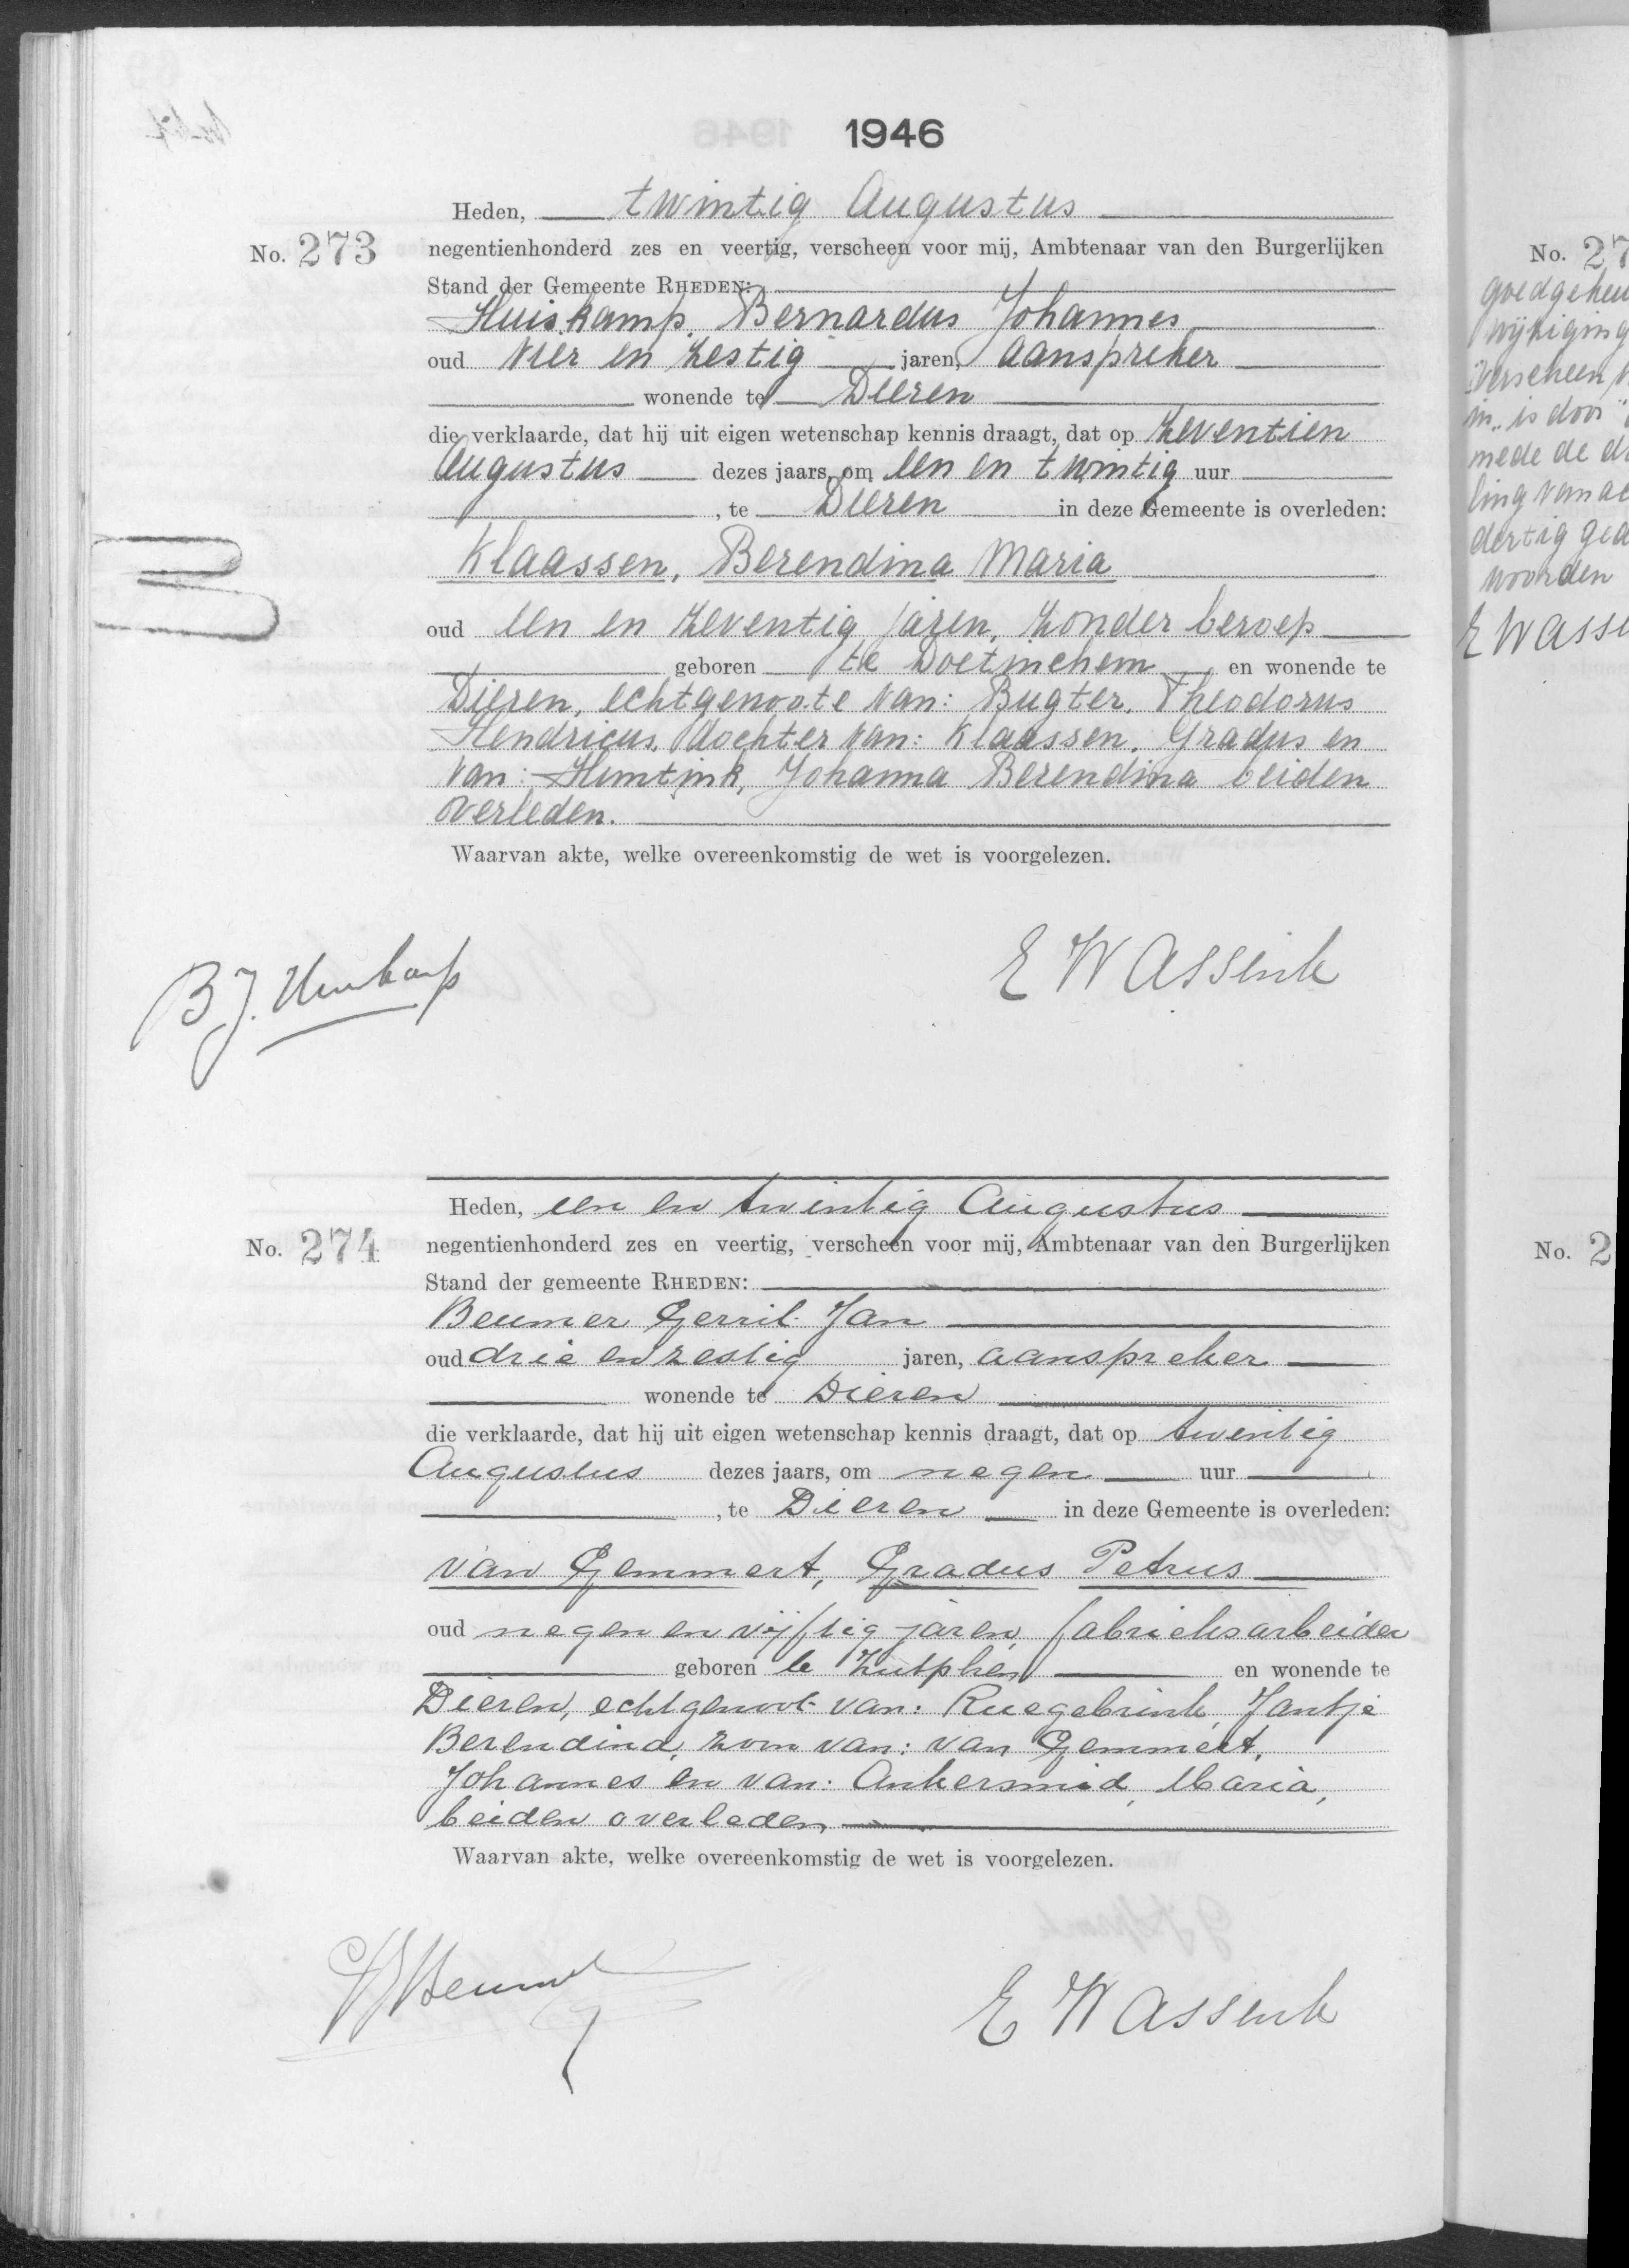 1946
Heden, twintig Augustus
No. 273
negentienhonderd zes en veertig, verscheen voor mij, Ambtenaar van den Burgerlijken
Stand der Gemeente RHEDEN:
Huiskamp, Bernardus Johannes
oud vier en zestig jaren, aanspreker
wonende te Dieren
die verklaarde, dat hij uit eigen wetenschap kennis draagt, dat op zeventien
Augustus dezes jaars, om een en twintig uur
, te Dieren in deze Gemeente is overleden:
Klaassen, Berendina Maria
oud een en zeventig jaren, zonder beroep
geboren te Doetinchem, en wonende te
Dieren, echtgenoote van: Bugter, Theodorus
Hendricus, dochter van: Klaassen, Gradus en
van: Himtink, Johanna Berendina beiden
overleden.
Waarvan akte, welke overeenkomstig de wet is voorgelezen.
B.J. Huiskamp
E Wassink
Heden, een en twintig Augustus
No. 274
negentienhonderd zes en veertig, verscheen voor mij, Ambtenaar van den Burgerlijken
Stand der gemeente RHEDEN:
Beumer Gerrit Jan
oud drie en zestig jaren, aanspreker
wonende te Dieren
die verklaarde, dat hij uit eigen wetenschap kennis draagt, dat op twintig
Augustus dezes jaars, om negen uur
, te Dieren in deze Gemeente is overleden:
van Gemmert, Gradus Petrus
oud negen en vijftig jaren, fabrieksarbeider
geboren te Zutphen en wonende te
Dieren, echtgenoot van: Ruegebrink, Jantje
Berendina, zoon van: van Gemmert,
Johannes en van: Ankersmid, Maria,
beiden overleden
Waarvan akte, welke overeenkomstig de wet is voorgelezen.
Beumer
E Wassink
No. 27
goedgekeu
wijziging
verscheen,
in "is door"
mede de
ling van
dertig
woorden
E Wassi
No. 2